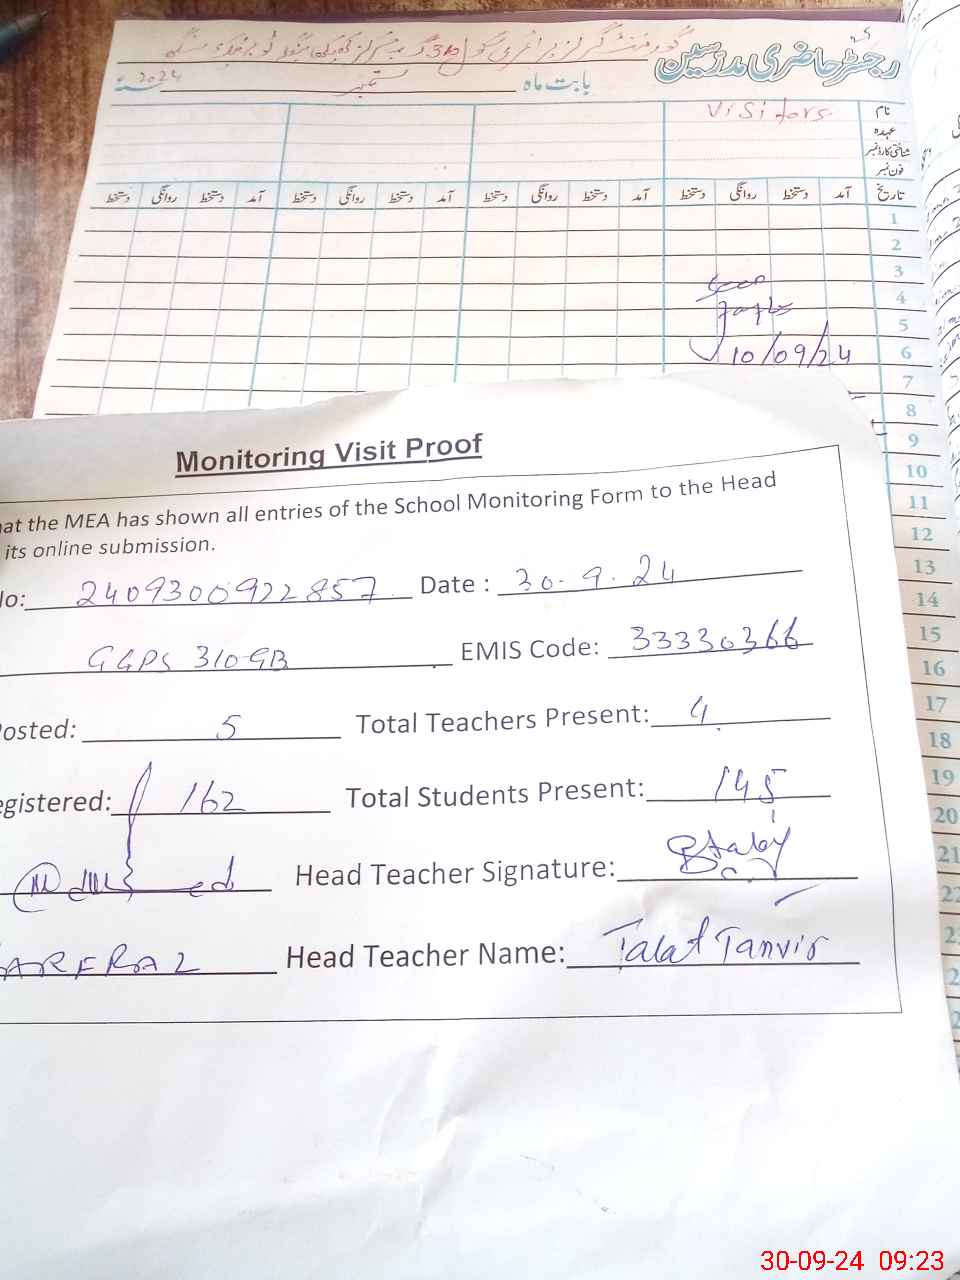 رجسٹر حاضری مدرسین
گورنمنٹ گرلز پرائمری سکول 310 گ ب
بابت ماہ ستمبر 2024ء
نام Visitors
عہدہ
شناختی کارڈ نمبر
فون نمبر
تاریخ آمد دستخط روانگی دستخط آمد دستخط روانگی دستخط آمد دستخط روانگی دستخط آمد دستخط روانگی دستخط
1
2
3
4
5
6
10/09/24
7
8
9
10
11
12
13
14
15
16
17
18
19
20
21
22
Monitoring Visit Proof
hat the MEA has shown all entries of the School Monitoring Form to the Head
its online submission.
No: 2409300922857 Date : 30.9.24
GGPS 310 GB EMIS Code: 33330366
Posted: 5 Total Teachers Present: 4
egistered: 162 Total Students Present: 145
Head Teacher Signature:
Head Teacher Name: Talat Tanvir
30-09-24 09:23